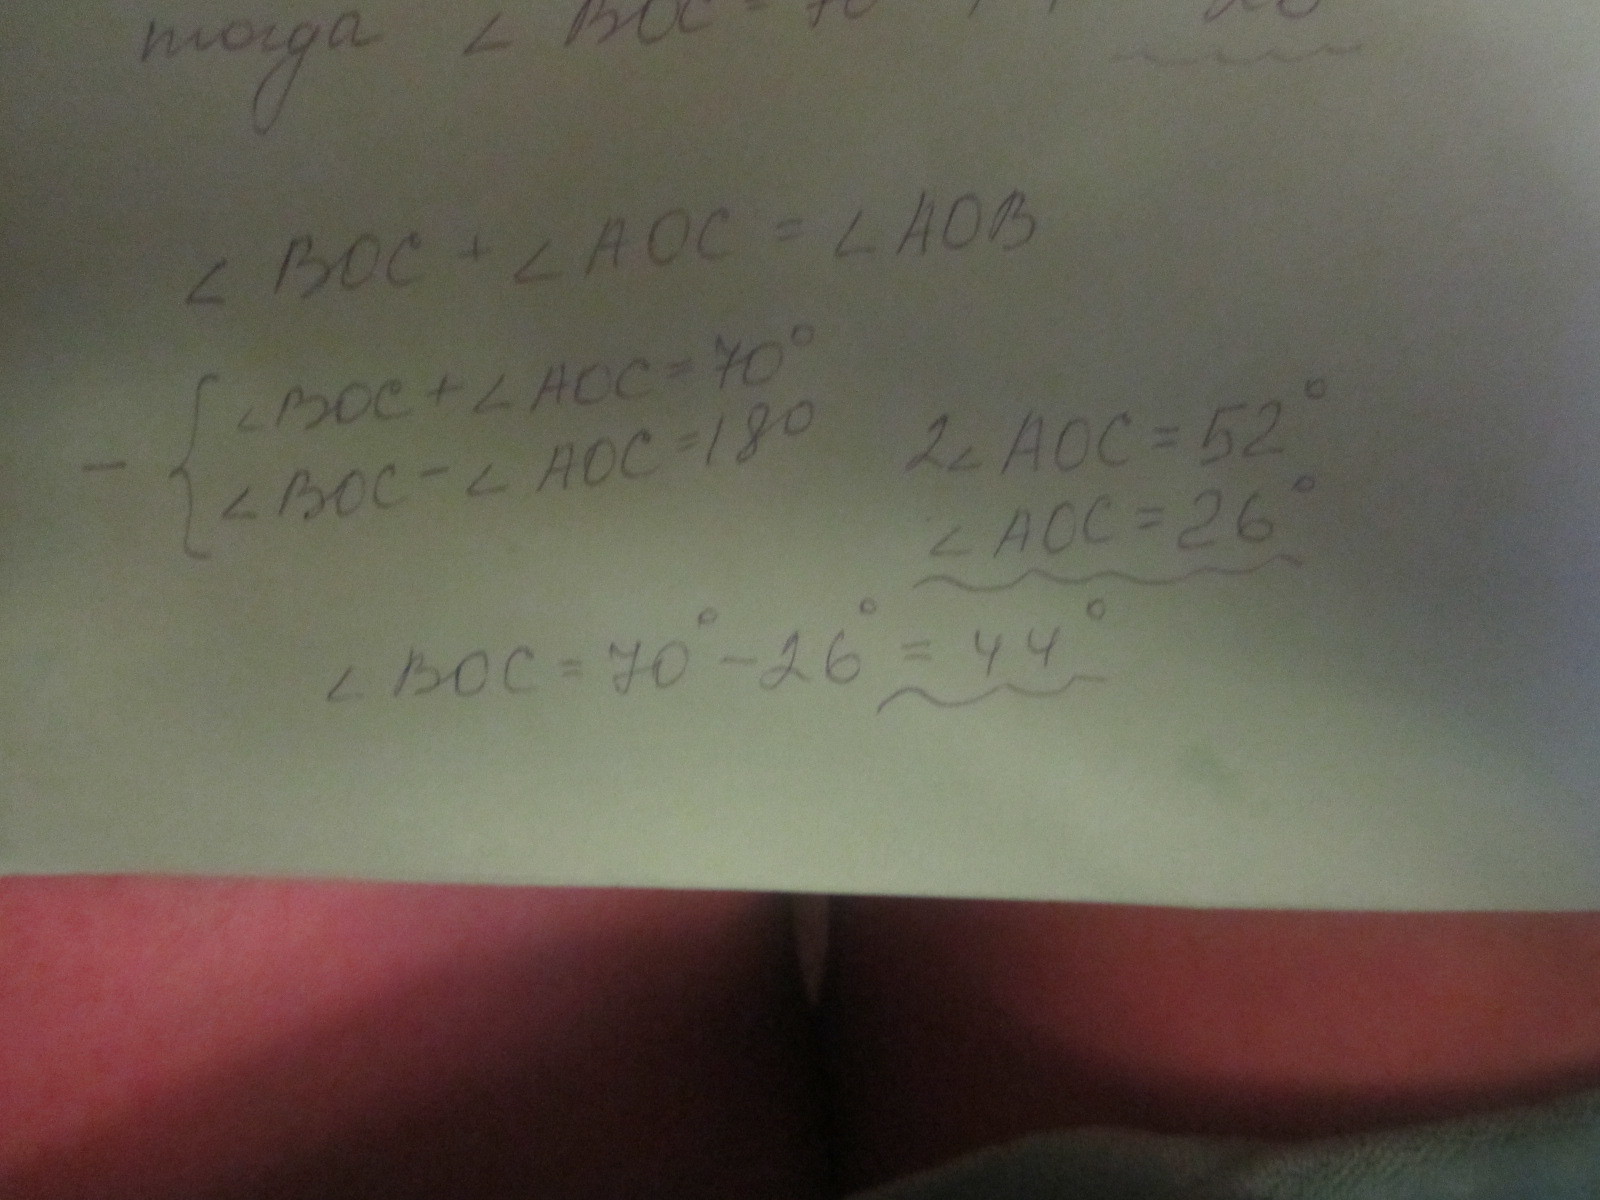 тогда ∠ BOC = 70
∠ BOC + ∠ AOC = ∠ AOB
- { ∠BOC + ∠ AOC = 70°
∠BOC - ∠ AOC = 180
2∠ AOC = 52°
∠ AOC = 26°
∠ BOC = 70° - 26° = 44°